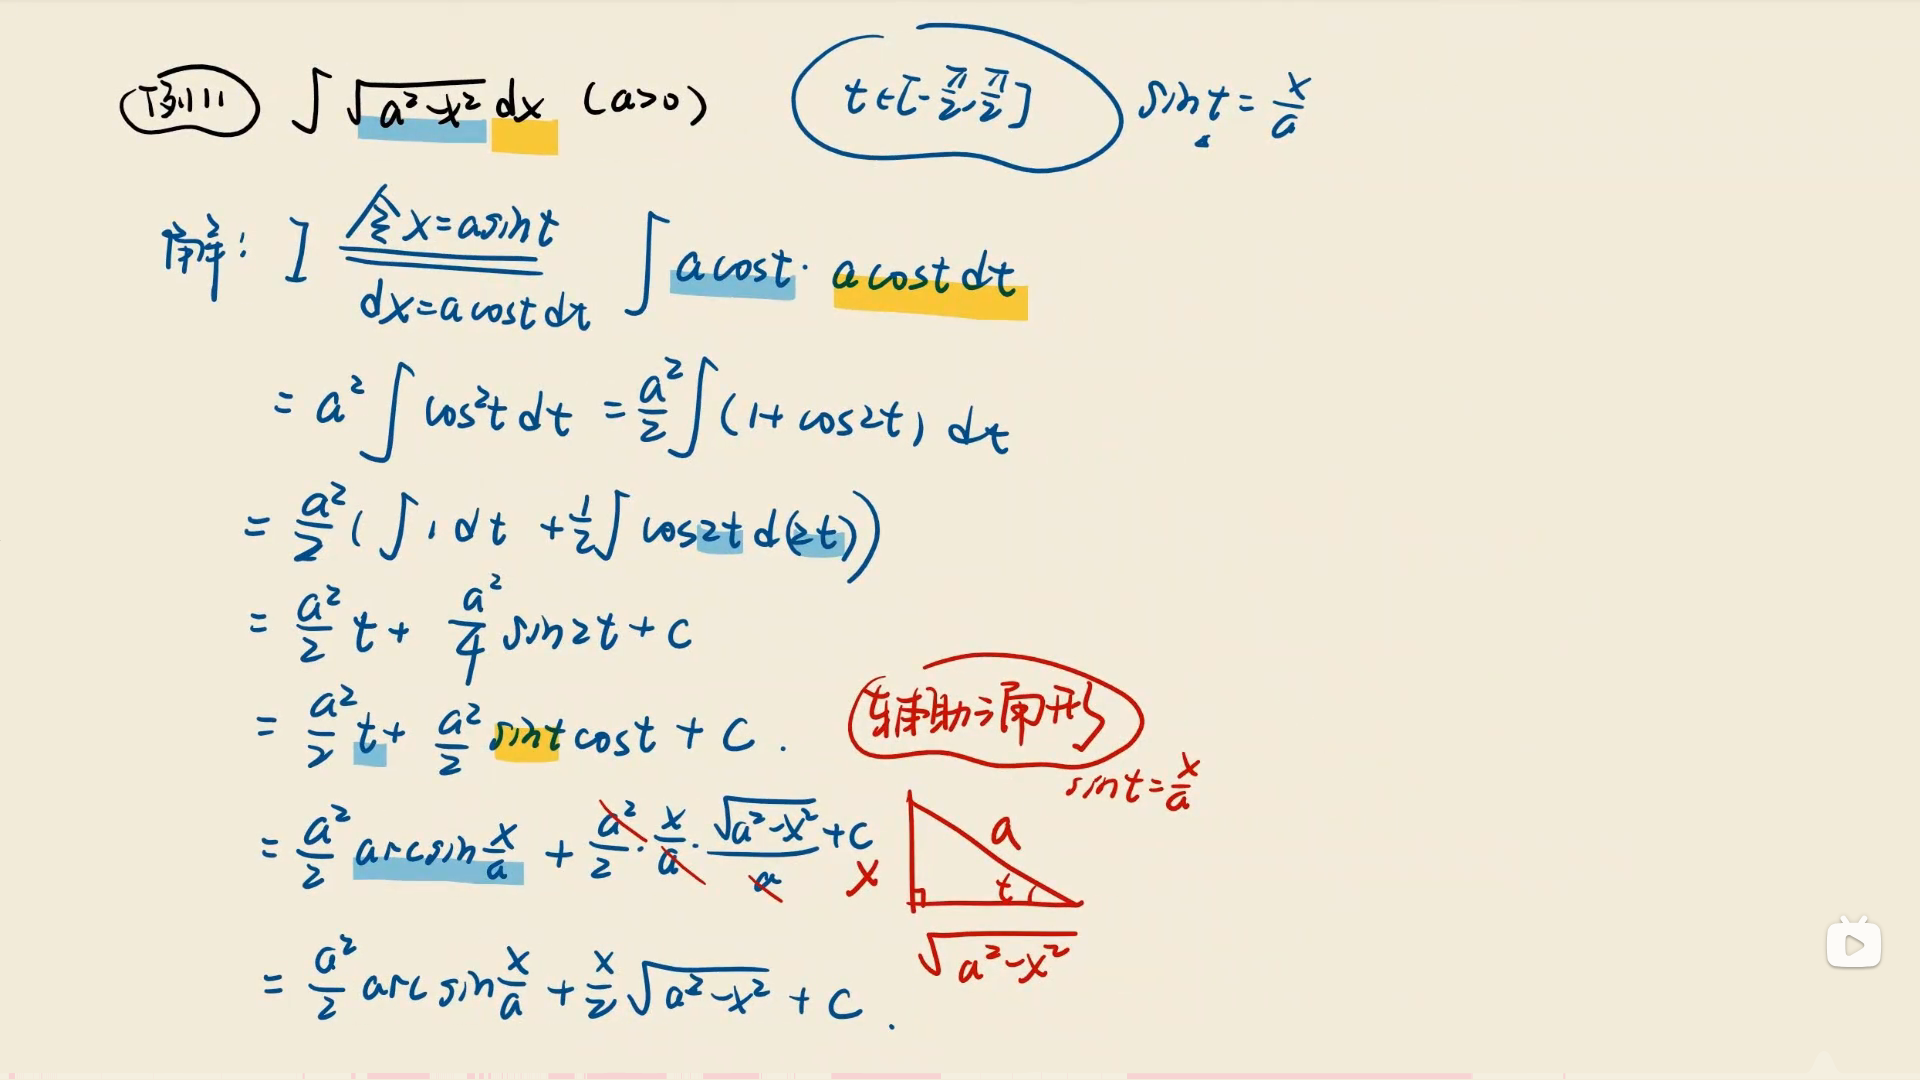 例11 ∫√(a²-x²) dx (a>0) t∈[-π/2,π/2] sint=x/a
解: I 令x=asint ∫acost·acostdt
dx=acostdt
=a²∫cos²tdt=a²/2∫(1+cos2t)dt
=a²/2(∫1dt+1/2∫cos2td(2t))
=a²/2 t+a²/4 sin2t+C
=a²/2 t+a²/2 sintcost+C.
辅助三角形
sint=x/a
=a²/2 arcsin x/a+a²/2·x/a·√(a²-x²)/a+C
x a t
√(a²-x²)
=a²/2 arcsin x/a+x/2 √(a²-x²)+C.